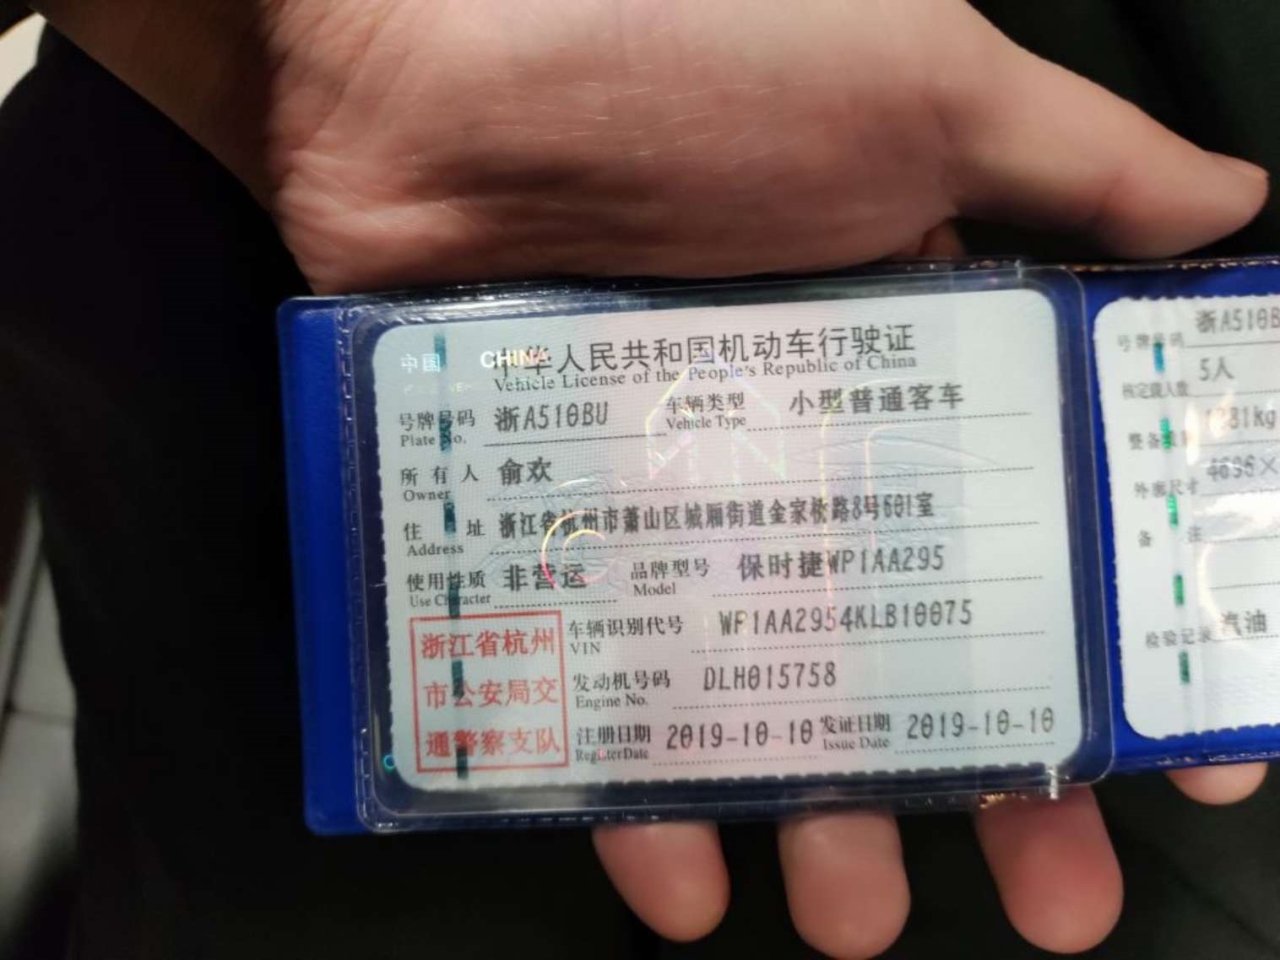 中国 CHINA
中华人民共和国机动车行驶证
Vehicle License of the People's Republic of China
号牌号码 浙A510BU 车辆类型 小型普通客车
Plate No. Vehicle Type
所有人 俞欢
Owner
住址 浙江省杭州市萧山区城厢街道金家桥路8号601室
Address
使用性质 非营运 品牌型号 保时捷WP1AA295
Use Character Model
浙江省杭州
市公安局交
通警察支队
车辆识别代号 WP1AA2954KLB10075
VIN
发动机号码 DLH015758
Engine No.
注册日期 2019-10-10 发证日期 2019-10-10
Register Date Issue Date
号牌号码 浙A510B
核定载人数 5人
整备质量
外廓尺寸 4696×
备注
检验记录 汽油